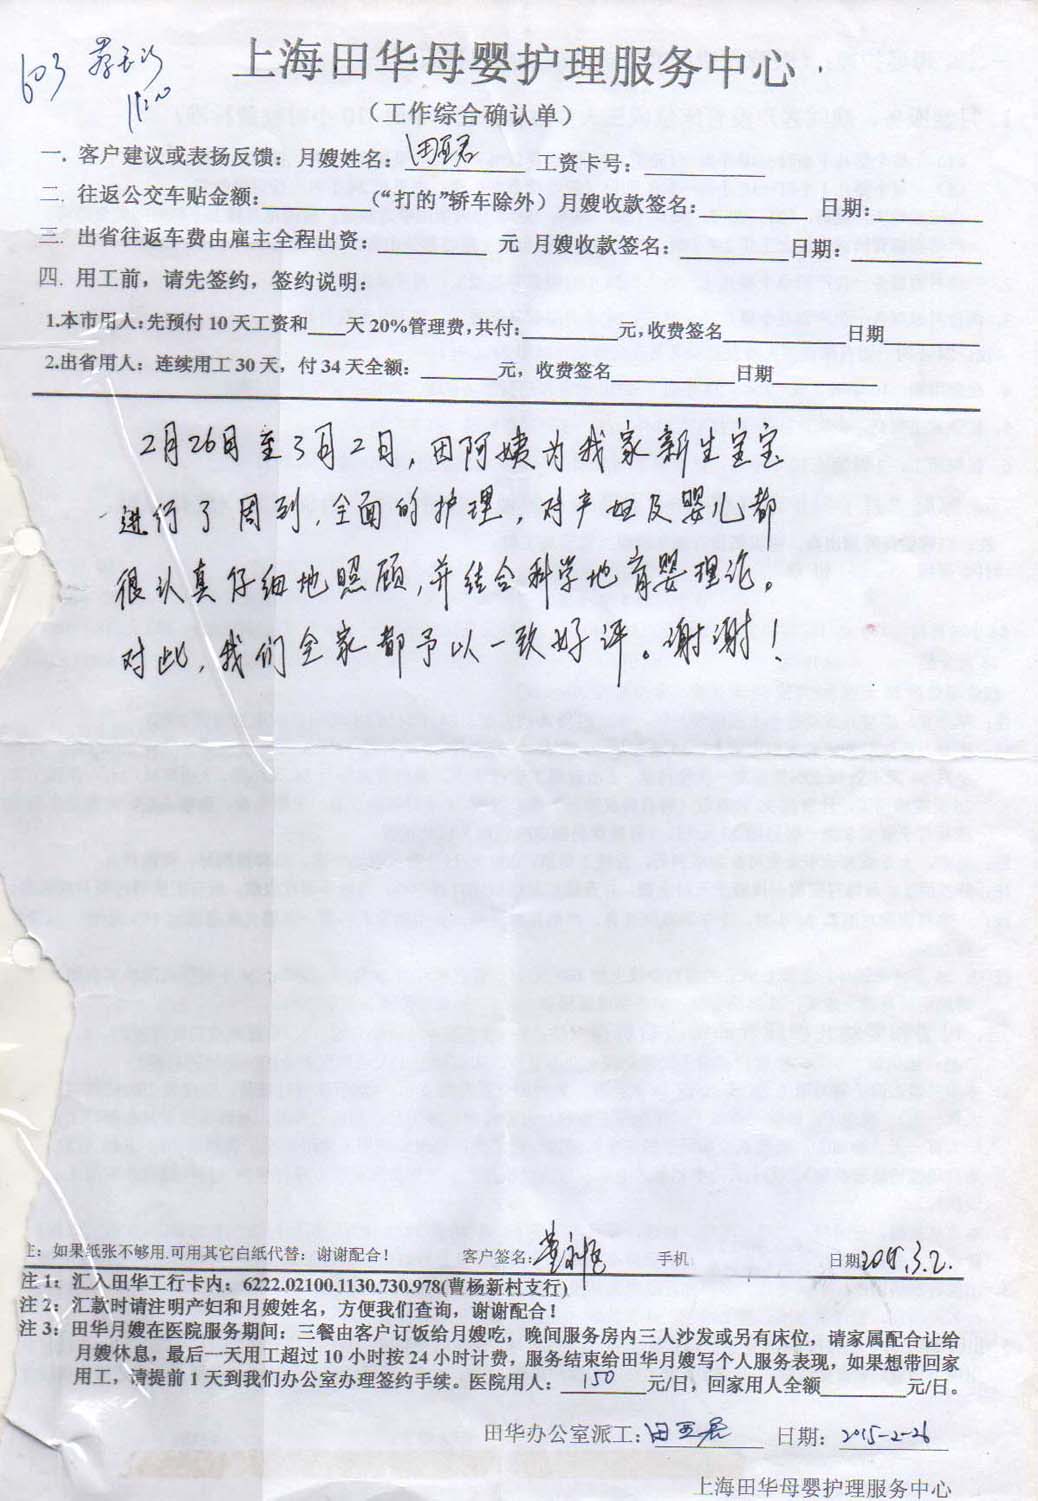 603
11:20
上海田华母婴护理服务中心
（工作综合确认单）
一. 客户建议或表扬反馈：月嫂姓名：田亚君 工资卡号：
二. 往返公交车贴金额: （“打的”轿车除外）月嫂收款签名: 日期:
三. 出省往返车费由雇主全程出资: 元 月嫂收款签名: 日期:
四. 用工前，请先签约，签约说明:
1.本市用人: 先预付10天工资和 天20%管理费,共付: 元,收费签名 日期
2.出省用人：连续用工30天，付34天全额: 元，收费签名 日期
2月26日至3月2日，田阿姨为我家新生宝宝
进行了周到、全面的护理，对产妇及婴儿都
很认真仔细地照顾，并结合科学地育婴理论。
对此，我们全家都予以一致好评。谢谢！
注：如果纸张不够用,可用其它白纸代替：谢谢配合！ 客户签名: 手机: 日期2015.3.2.
注1：汇入田华工行卡内：6222.02100.1130.730.978(曹杨新村支行)
注2：汇款时请注明产妇和月嫂姓名，方便我们查询，谢谢配合！
注3：田华月嫂在医院服务期间：三餐由客户订饭给月嫂吃，晚间服务房内三人沙发或另有床位，请家属配合让给
月嫂休息，最后一天用工超过10小时按24小时计费，服务结束给田华月嫂写个人服务表现，如果想带回家
用工，请提前1天到我们办公室办理签约手续。医院用人: 150 元/日，回家用人全额 元/日。
田华办公室派工: 田亚君 日期: 2015-2-26
上海田华母婴护理服务中心